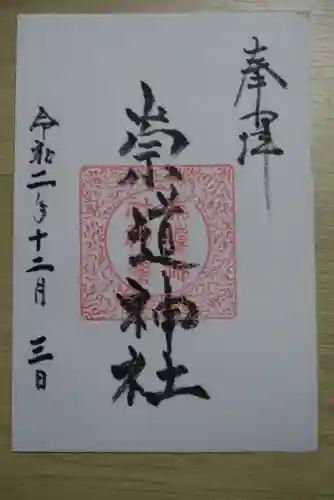 奉拝
崇道神社
令和二年十二月三日